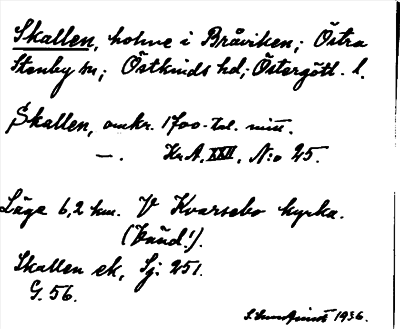 Skallen, holme i Bråviken; Östra
Stenby sn; Östkinds hd; Östergötl. l.
Skallen, omkr. 1700-tal. mitt.
—. Kr.A. XXII, N:o 25.
Läge 6,2 km. V Kvarsebo kyrka.
(Vänd!).
Skallen ek, Sj. 251.
G. 56.
1936.